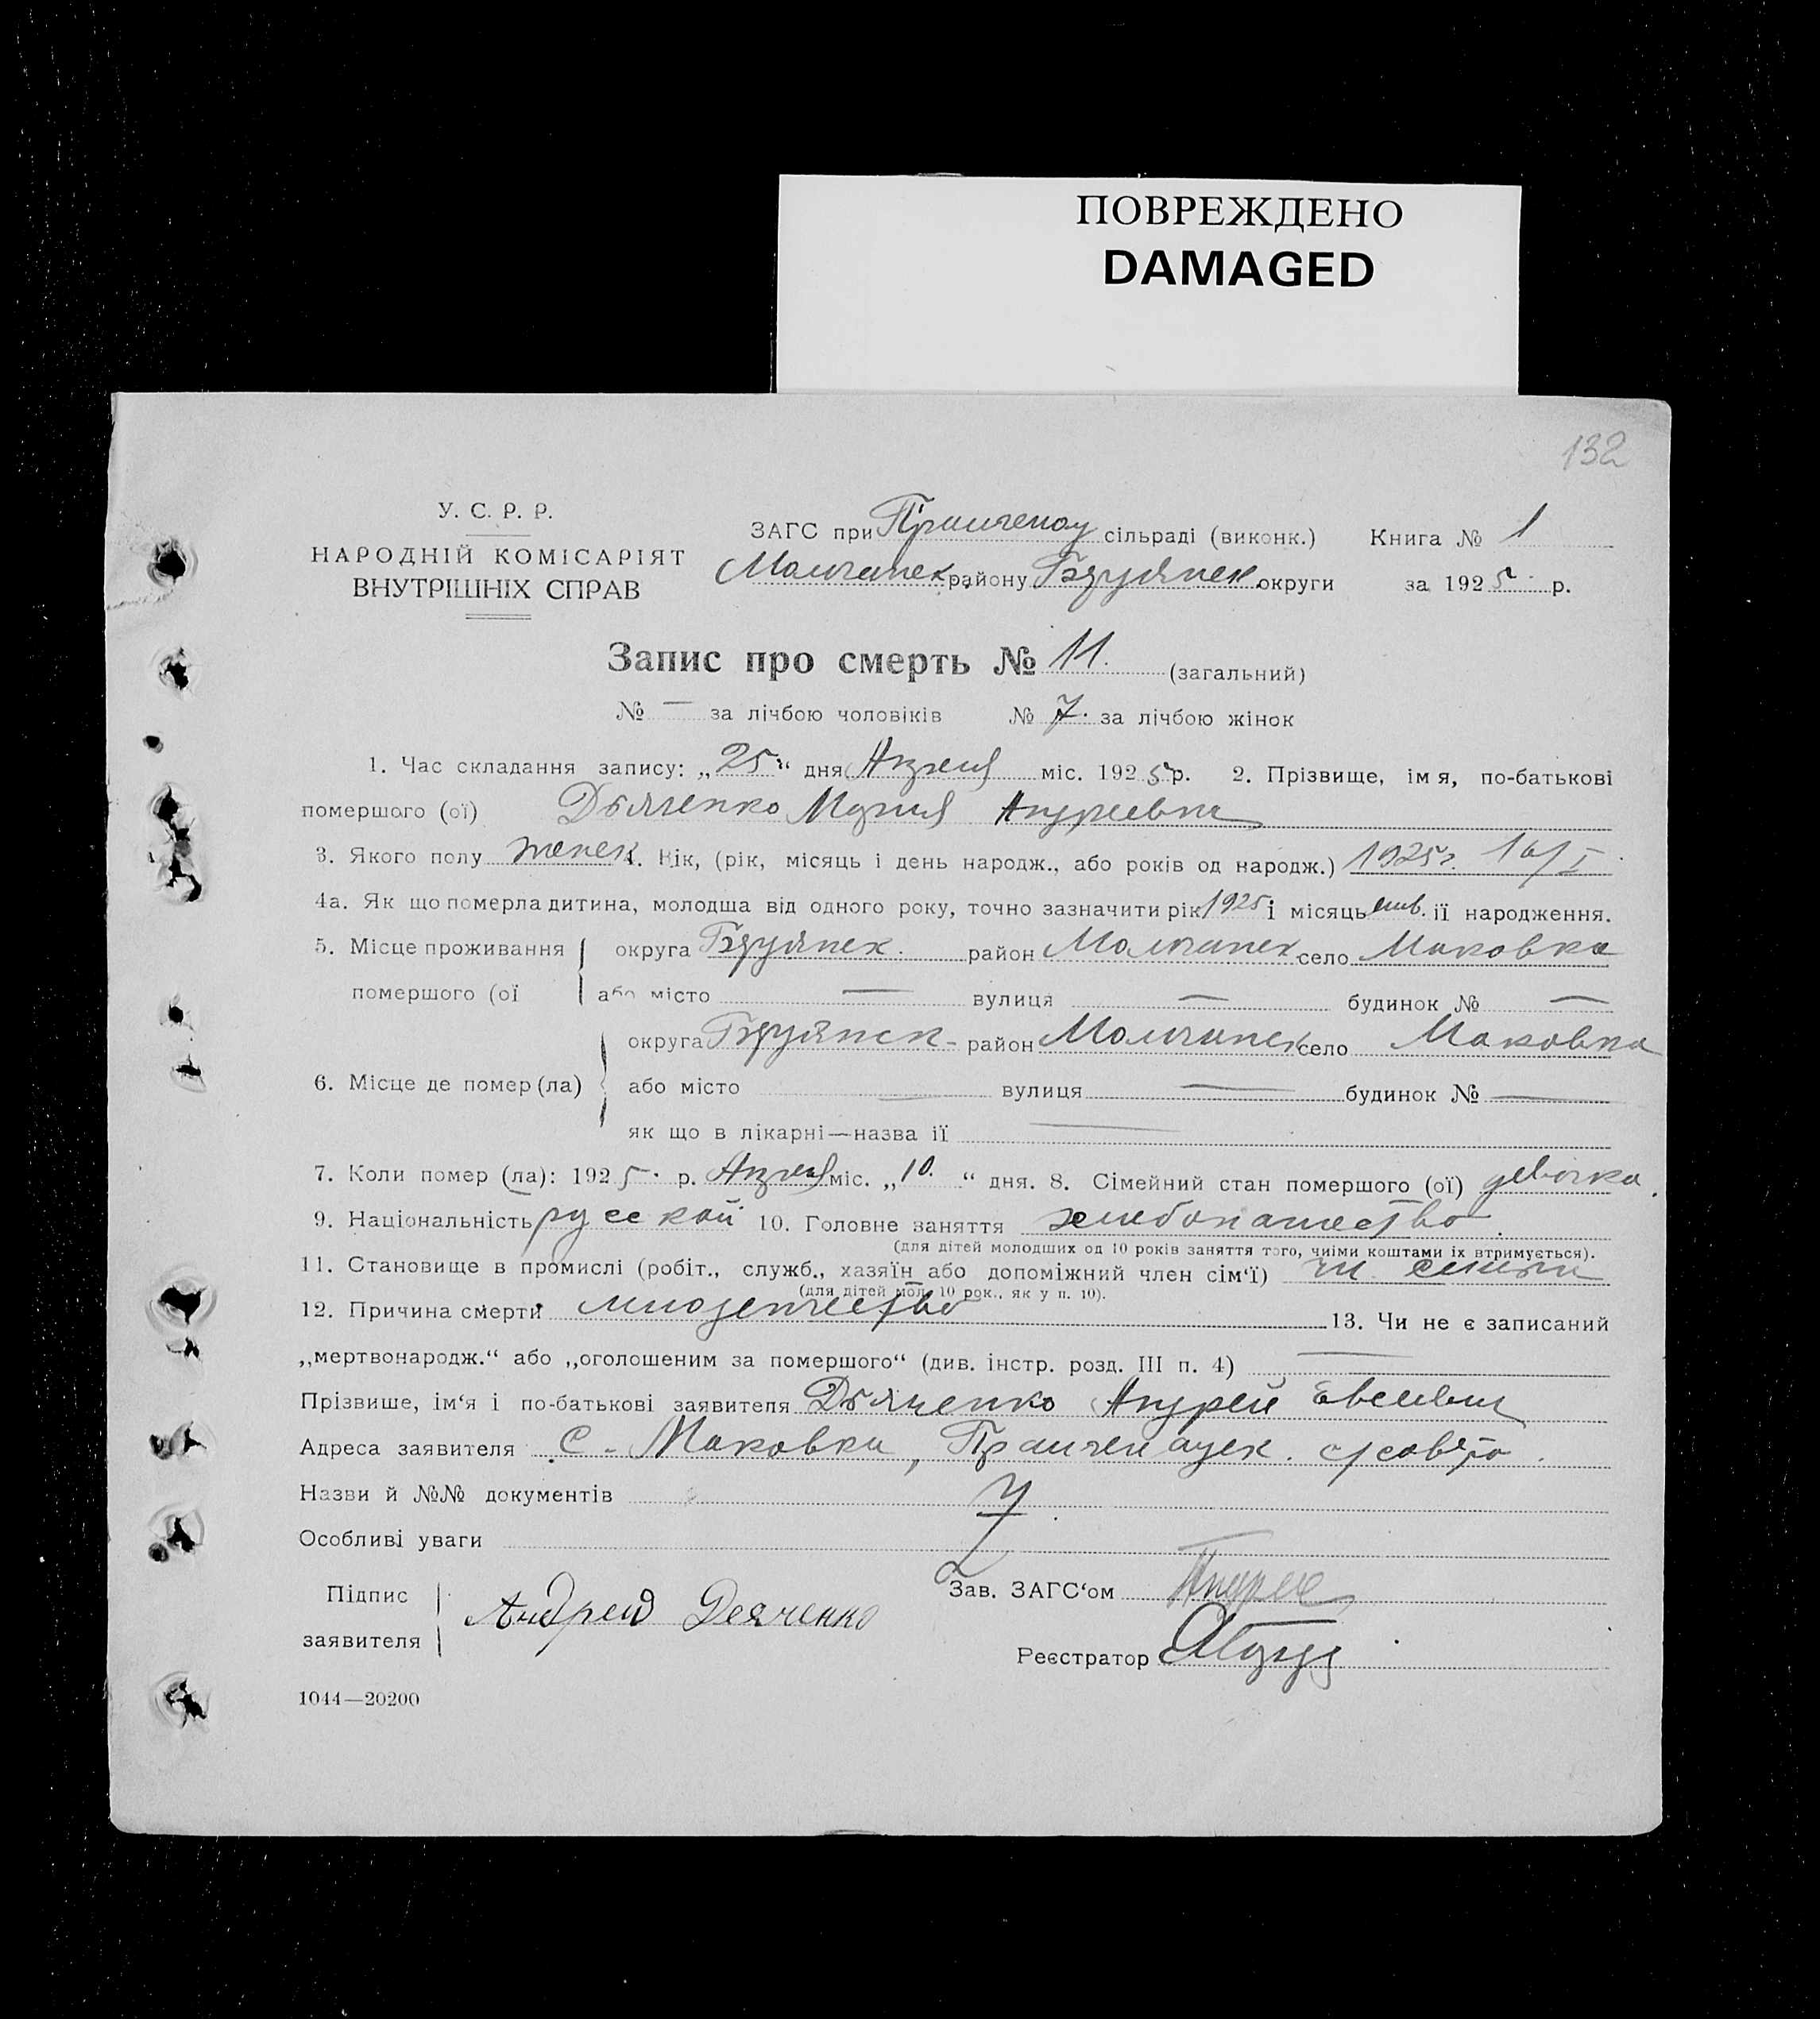 ПОВРЕЖДЕНО
DAMAGED
132
У. С. Р. Р.
НАРОДНІЙ КОМІСАРІЯТ
ВНУТРІШНІХ СПРАВ
ЗАГС при сільраді (виконк.) Книга № 1
району округи за 1925 р.
Запис про смерть № 11. (загальний)
№ — за лічбою чоловіків № 7. за лічбою жінок
1. Час складання запису: „25“ дня Апреля міс. 1925 р. 2. Прізвище, імя, по-батькові
помершого (ої) Дьяченко Мария Андреевна
3. Якого полу женск 4. Вік, (рік, місяць і день народж., або років од народж.) 1925г. 16/I
4а. Як що померла дитина, молодша від одного року, точно зазначити рік 1925 і місяць янв. її народження.
5. Місце проживання округа район село Маковка
помершого (ої або місто — вулиця — будинок № —
округа район село Маковка
6. Місце де помер (ла) або місто — вулиця — будинок № —
як що в лікарні—назва її —
7. Коли помер (ла): 1925. р. Апреля міс. „10.“ дня. 8. Сімейний стан помершого (ої) девочка.
9. Національність русской 10. Головне заняття хлебопашество.
(для дітей молодших од 10 років заняття того, чиїми коштами їх втримується).
11. Становище в промислі (робіт., служб., хазяїн або допоміжний член сім‘ї) чл. семьи
(для дітей мол. 10 рок., як у п. 10).
12. Причина смерти младенчество 13. Чи не є записаний
„мертвонародж.“ або „оголошеним за помершого“ (див. інстр. розд. III п. 4) —
Прізвише, ім‘я і по-батькові заявителя Дьяченко Андрей
Адреса заявителя С. Маковка, с/совета.
Назви й №№ документів
Особливі уваги
Підпис
заявителя
Андрей Деяченко
Зав. ЗАГС‘ом
Реєстратор
1044—20200